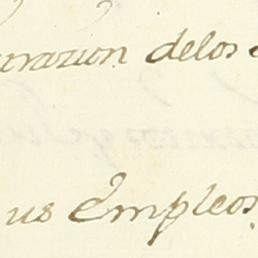 razon delos
us Empleos